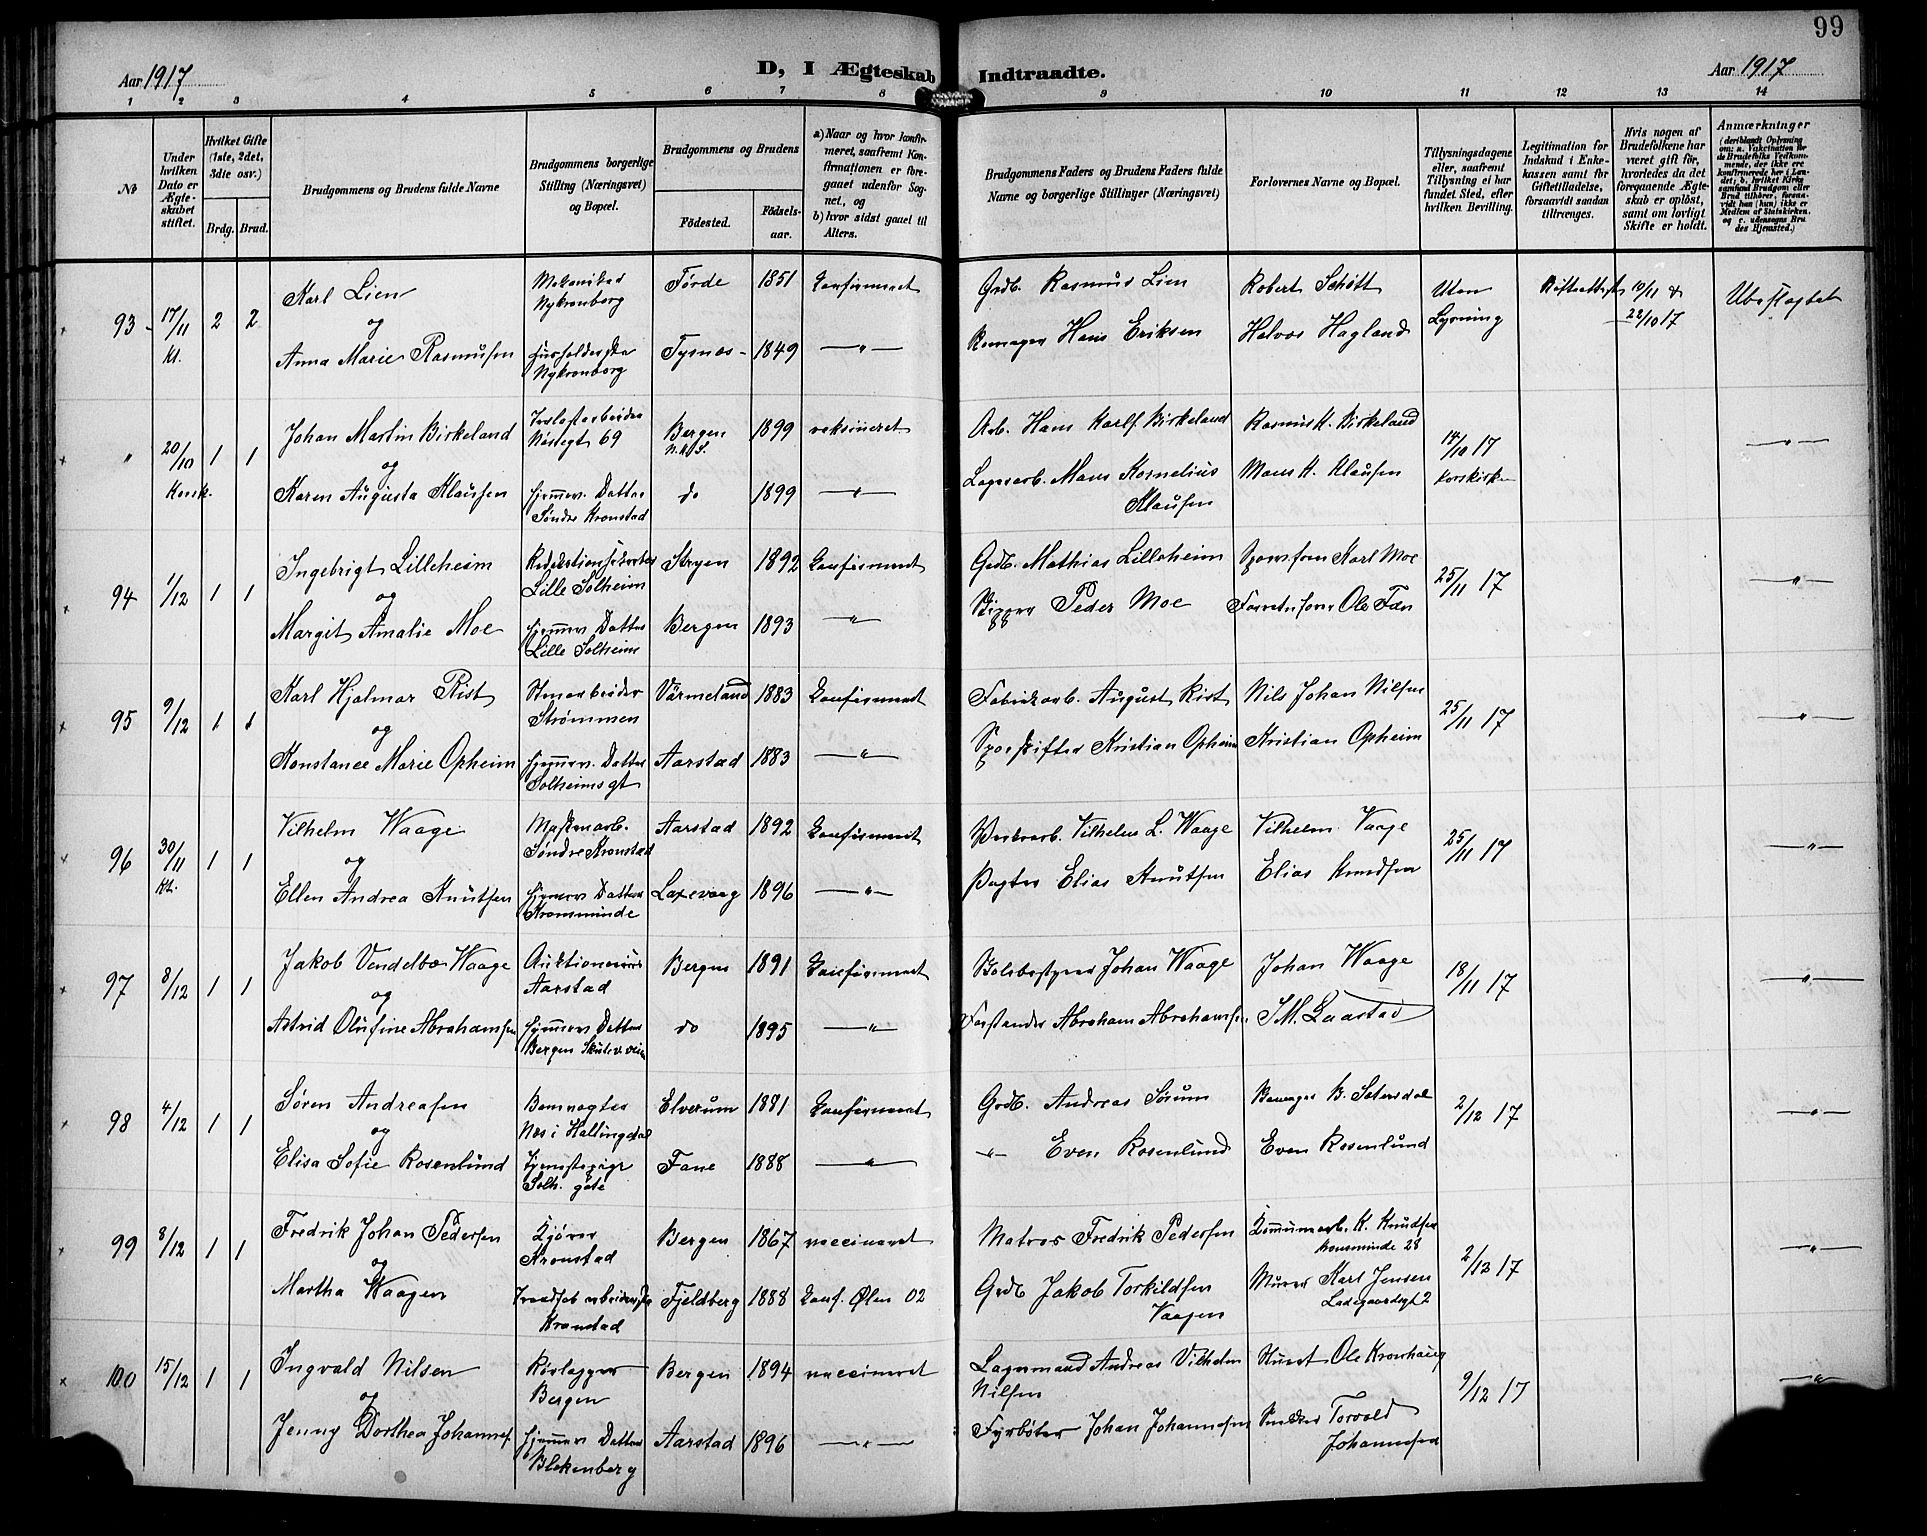 99
Aar 1917
D, I Ægteskab Indtraadte.
Aar 1917
1 2 3 4 5 6 7 8 9 10 11 12 13 14
No
Under hvilken Dato er Ægteskabet stiftet.
Hvilket Gifte (1ste, 2det, 3dte osv.)
Brdg. Brud.
Brudgommens og Brudens fulde Navne
Brudgommens borgerlige Stilling (Næringsvei) og Bopæl.
Brudgommens og Brudens
Födested.
Födselsaar.
a) Naar og hvor konfirmeret, saafremt Konfirmationen er foregaaet udenfor Sognet, og
b) hvor sidst gaaet til Alters.
Brudgommens Faders og Brudens Faders fulde Navne og borgerlige Stillinger (Næringsvei)
Forlovernes Navne og Bopæl.
Tillysningsdagene eller, saafremt Tillysning ei har fundet Sted, efter hvilken Bevilling.
Legitimation for Indskud i Enkekassen samt for Giftetilladelse, forsaavidt saadan tiltrænges.
Hvis nogen af Brudefolkene har været gift för, hvorledes da det foregaaende Ægteskab er oplöst, samt om lovligt Skifte er holdt.
Anmærkninger
(deriblandt Oplysning om: a. Vakcination for de Brudefolks Vedkommende, der ikke ere konfirmerede her i Landet; b. hvilket Kirkesamfund Brudgom eller Brud tilhörer, forsaavidt han (hun) ikke er Medlem af Statskirken, og c. udensogns Brudes Hjemsted.)
93 17/11 Kl. 2 2
Karl Lien
og
Anna Marie Rasmusen
Mekanikad
Nykronborg
Husholderske
Nykronborg
Førde 1851 konfirmeret
Tysnes 1849 —„—
Grdb. Rasmus Lien
Hans Eriksen
Robert Schøtt
Halvor Hagland
Uten
Lysning
Skifteattest 10/11 &
22/10 17
Ubeslægtet
„ 20/10 Korsk. 1 1
Johan Martin Birkeland
og
Karen Augusta Klausen
Nøstegt 69
Hjemmev. Datter
Søndre Kronstad
Bergen 1899 vaksineret
N.K.S.
do 1899 —„—
Arb. Hans Karlf Birkeland
Lagerarb. Mons Kornelius
Klausen
Rasmus K. Birkeland
Mons K. Klausen
14/10 17
Korskirken
—„—
94 1/12 1 1
Ingebrigt Lilleheim
og
Margit Amalie Moe
Redaktionssekretær
Lille Solheim
Hjemmev. Datter
Lille Solheim
Stryen 1892 konfirmeret
Bergen 1893 —„—
Grdb. Mathias Lilleheim
Skipper Peder Moe
Sporvsform Karl Moe
Ole Fæn
25/11 17
—„—
95 9/12 1 1
Karl Hjalmar Rist
og
Konstance Marie Opheim
Stenarbeider
Strømmen
Hjemmev. Datter
Solheimsgt
Värmeland 1883 konfirmeret
Aarstad 1883 —„—
Fabrikarb. August Rist
Sporskifter Kristian Opheim
Nils Johan Nilsen
Kristian Opheim
25/11 17
—„—
96 30/11 Kl. 1 1
Vilhelm Waage
og
Ellen Andrea Knutsen
Maskinarb.
Søndre Kronstad
Hjemmev. Datter
Kronsminde
Aarstad 1892 konfirmeret
Laxevaag 1896 —„—
Verksarb. Vilhelm L. Waage
Vagter Elias Knutsen
Vilhelm Vaage
Elias Knudsen
25/11 17
—„—
97 8/12 1 1
Jakob Vendelbo Waage
og
Astrid Olufine Abrahamsen
Auktionarius
Aarstad
Hjemmev. Datter
Bergen Skuteviksveien
Bergen 1891 konfirmeret
do 1895 —„—
Skolebestyrer Johan Waage
Forstander Abraham Abrahamsen
Johan Waage
S.M. Laastad
18/11 17
—„—
98 4/12 1 1
Søren Andreasen
og
Elisa Sofie Rosenlund
Banevogter
Næs i Hallingdal
Tjenestepige
Solh. gate
Elverum 1881 konfirmeret
Fane 1888 —„—
Grdb. Andreas Sørum
—„— Even Rosenlund
B. Setersdal
Even Rosenlund
2/12 17
—„—
99 8/12 1 1
Fredrik Johan Pedersen
og
Martha Waagen
Kjører
Kronstad
Traadfab. arbeiderske
Kronstad
Bergen 1867 vaccineret
Fjeldberg 1888 konf. Ølen 02
Matros Fredrik Pedersen
Grdb Jakob Torkildsen
Vaagen
Kommunearb. K. Knudsen
Kronsminde 28
Murer Karl Jensen
Ladegaardsgt 2
2/12 17
—„—
100 15/12 1 1
Ingvald Nilsen
og
Jenny Dorthea Johannes.
Rørlægger
Bergen
Hjemmev. Datter
Blekenberg
Bergen 1894 vaccineret
Aarstad 1896 —„—
Lagermand Andreas Vilhelm
Nilsen
Fyrbøter Johan Johannesen
Ole Kronhaug
Snedker Torvald
Johannesen
9/12 17
—„—